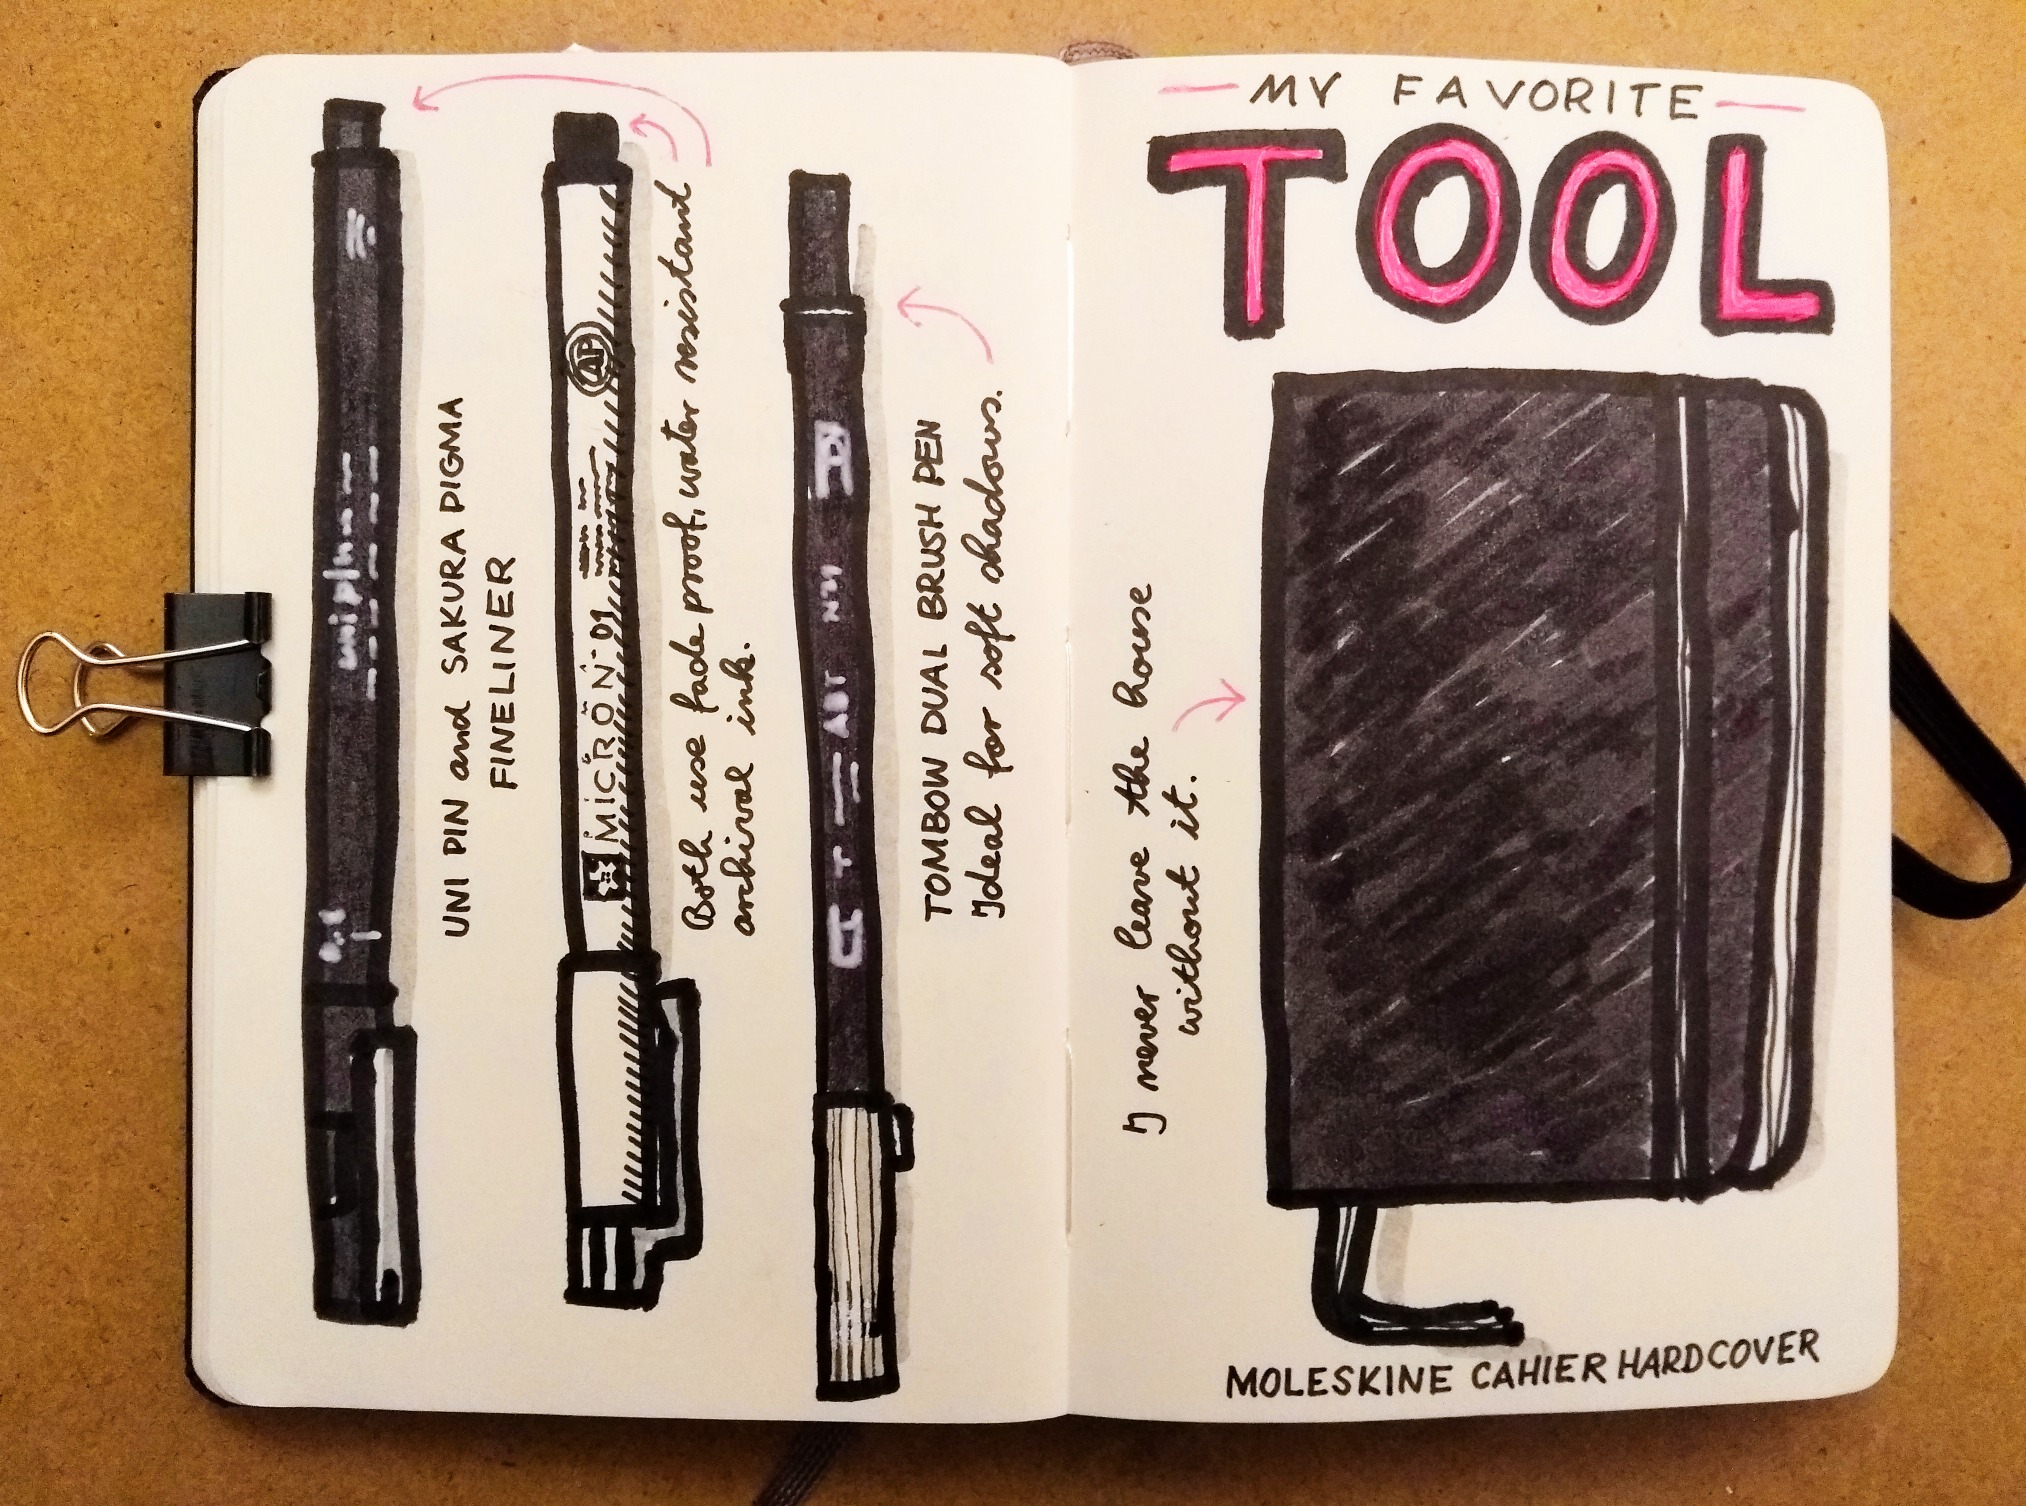 uni pin
Pil
AP
MICRON 01
UNI PIN and SAKURA PIGMA
FINELINER
Both use fade proof, water resistant
archival ink.
ABT
TOMBOW DUAL BRUSH PEN
Ideal for soft shadows.
MY FAVORITE
TOOL
I never leave the house
without it.
MOLESKINE CAHIER HARDCOVER